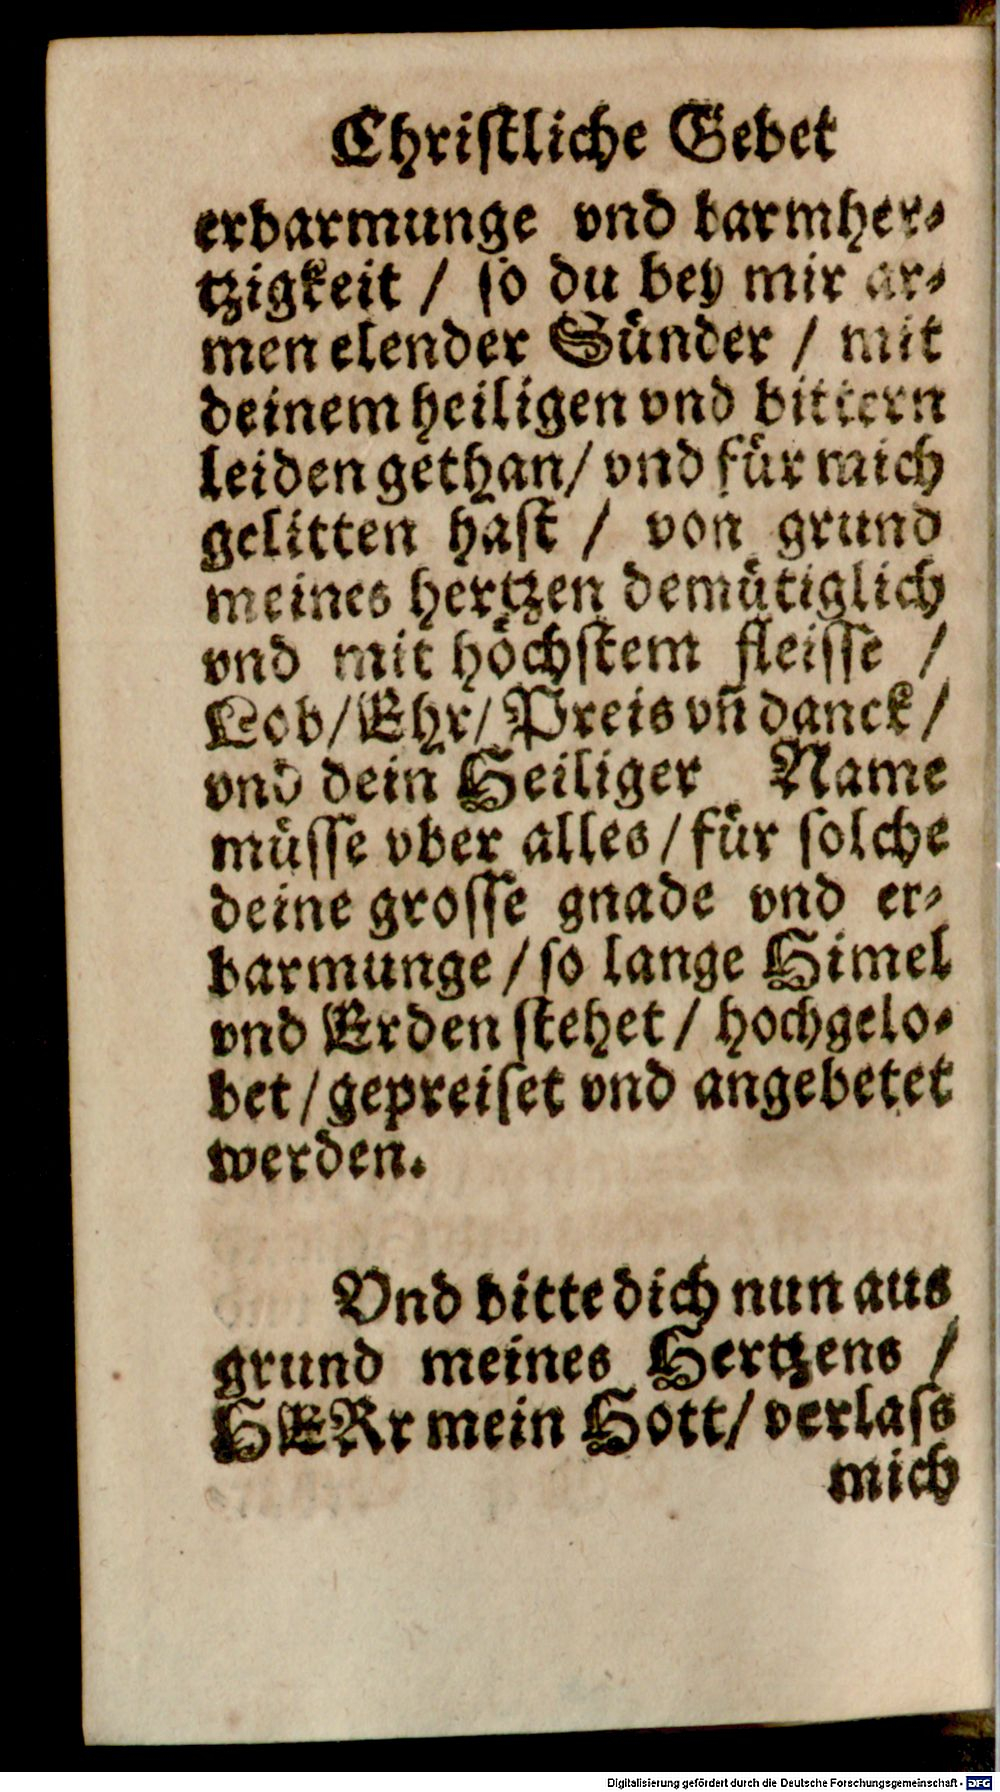 Christliche Gebet
erbarmunge vnd barmher-
tzigkeit / so du bey mir ar-
men elender Sünder / mit
deinem heiligen vnd bittern
leiden gethan / vnd für mich
gelitten hast / von grund
meines hertzen demütiglich
vnd mit höchstem fleisse /
Lob / Ehr / Preis vñ danck /
vnd dein Heiliger Name
müsse vber alles / für solche
deine grosse gnade vnd er-
barmunge / so lange Himel
vnd Erden stehet / hochgelo-
bet / gepreiset vnd angebetet
werden.
Vnd bitte dich nun aus
grund meines Hertzens /
HERr mein Gott / verlass
mich
Digitalisierung gefördert durch die Deutsche Forschungsgemeinschaft - DFG